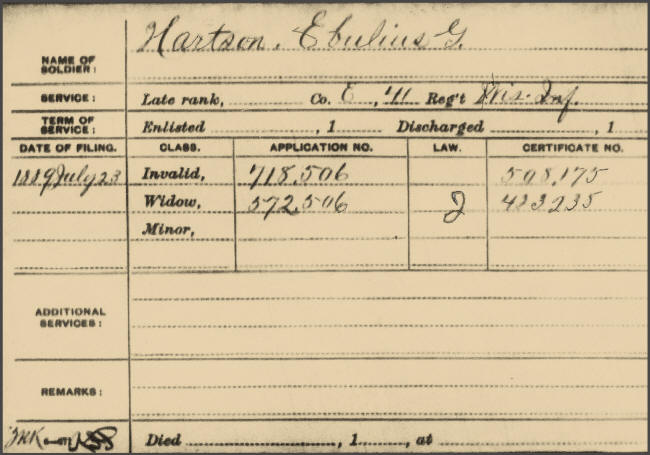 Hartson, Ebulius G.
NAME OF SOLDIER:
SERVICE: Late rank, Co. E, 41 Reg't Wis. Inf.
TERM OF SERVICE: Enlisted , 1 Discharged , 1
DATE OF FILING. CLASS. APPLICATION NO. LAW. CERTIFICATE NO.
1889 July 23 Invalid, 718,506 508,175
Widow, 572,506 J 423235
Minor,
ADDITIONAL SERVICES:
REMARKS:
Died , 1 , at